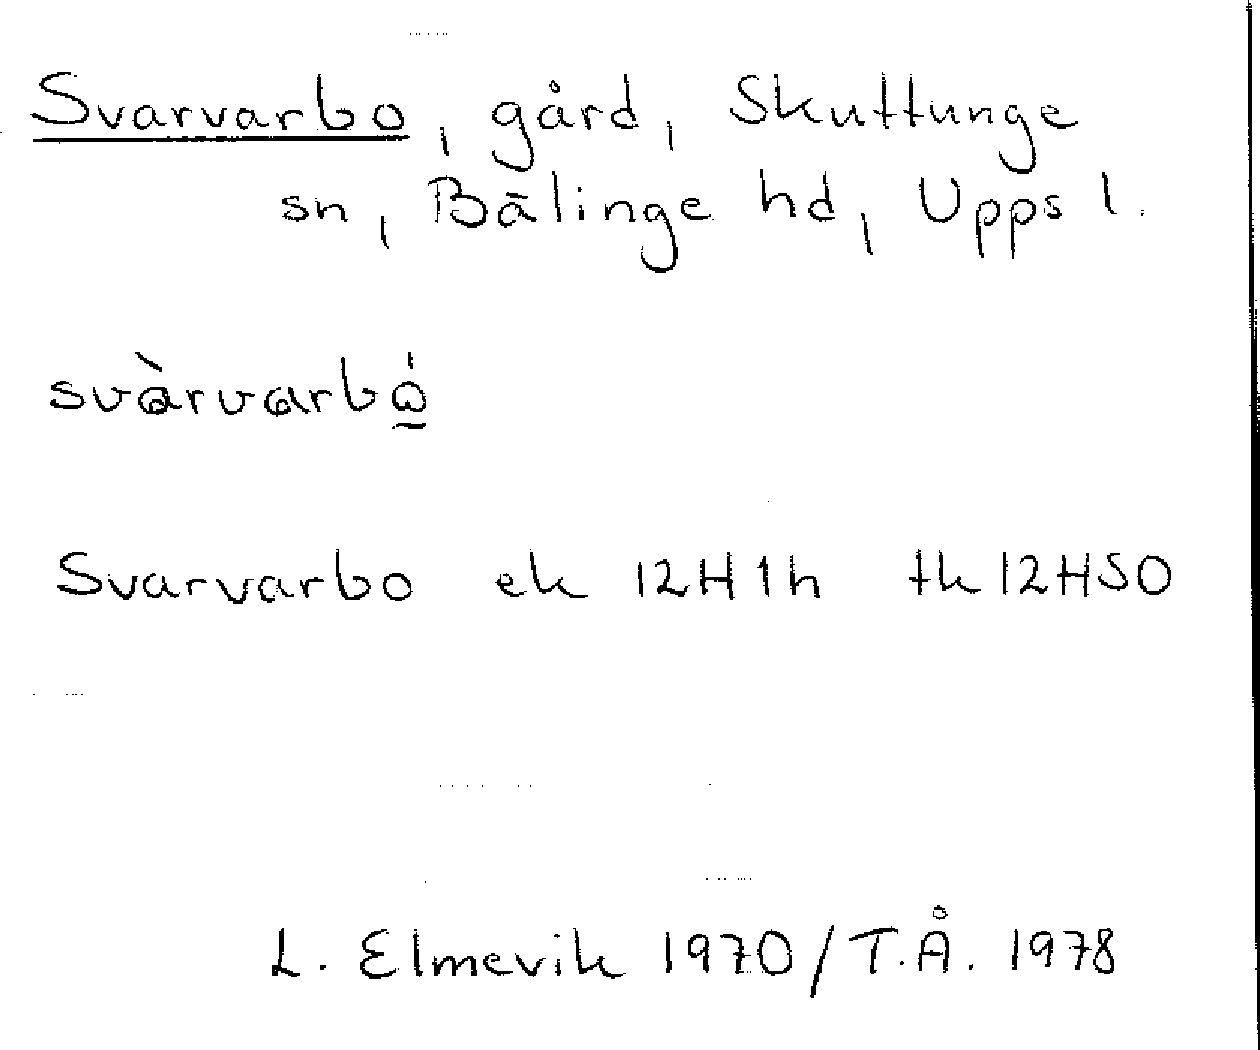 Svarvarbo, gård, Skuttunge
sn, Bälinge hd, Upps l.
svàrvarbó̰
Svarvarbo ek 12H1h tk 12HSO
L. Elmevik 1970/T.Å. 1978